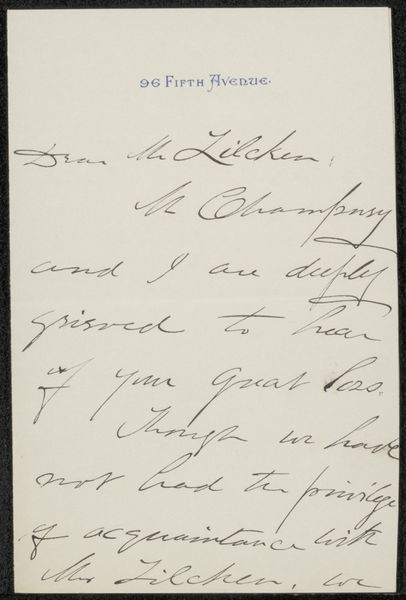 96 Fifth Avenue.
Dear Mr Zilcken,
M Champney
and I are deeply
grieved to hear
of your great loss.
Though we have
not had the privilege
of acquaintance with
Mrs Zilcken, we